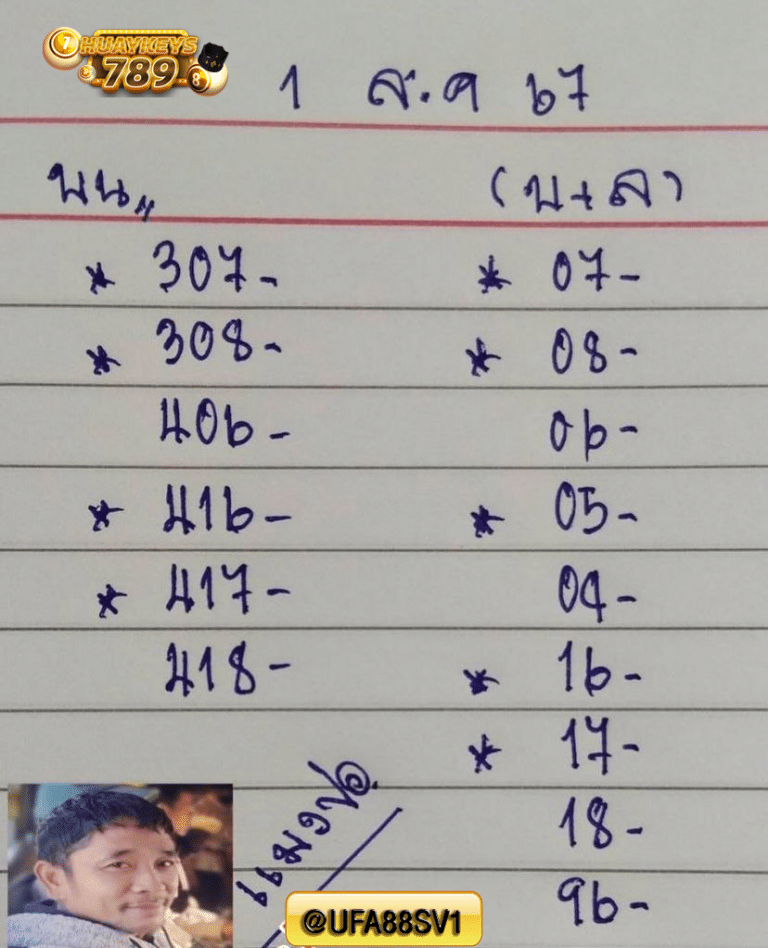 HUAYKEYS
789
1 ส.ค 67
บน,, (บ+ล)
* 307- * 07-
* 308- * 08-
406- 06-
* 416- * 05-
* 417- 04-
418- * 16-
* 17-
18-
96-
แมงปอ
@UFA88SV1